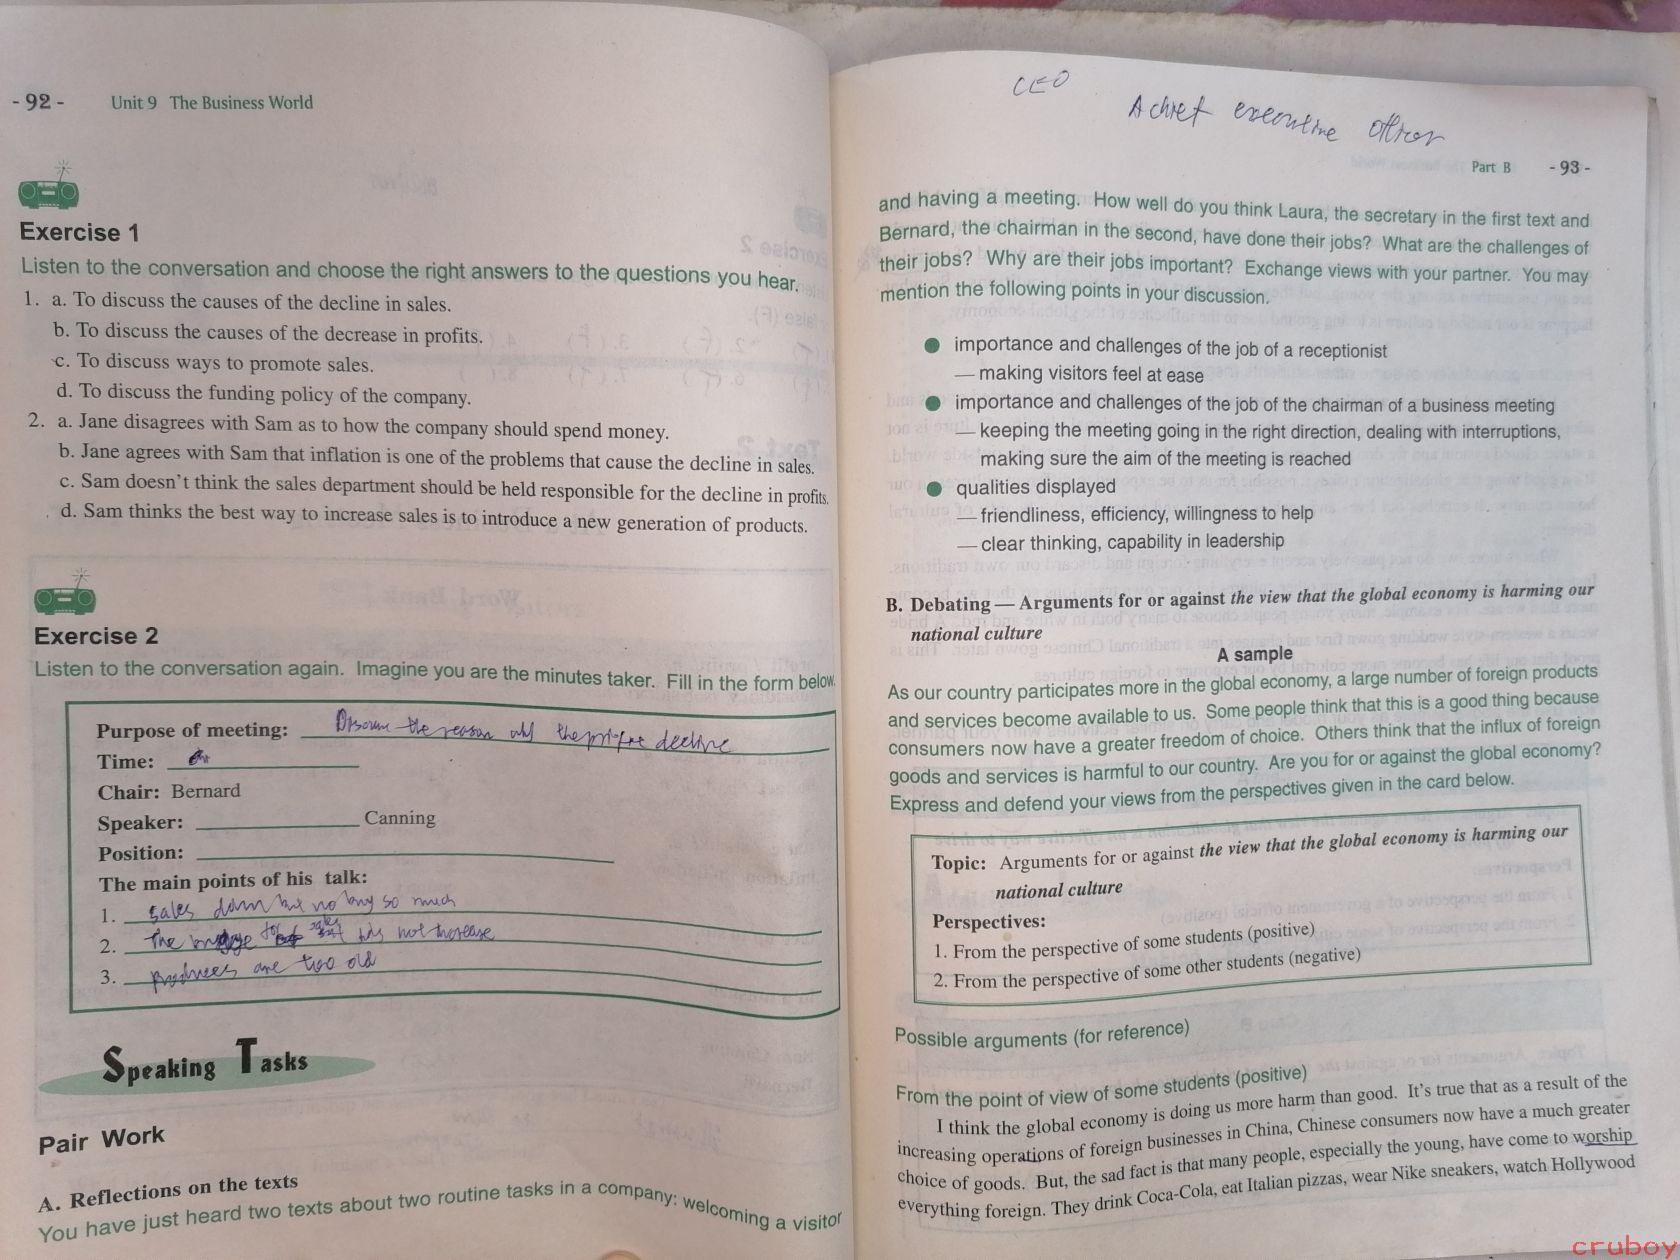 - 92 -    Unit 9  The Business World
Exercise 1
Listen to the conversation and choose the right answers to the questions you hear.
1. a. To discuss the causes of the decline in sales.
b. To discuss the causes of the decrease in profits.
c. To discuss ways to promote sales.
d. To discuss the funding policy of the company.
2. a. Jane disagrees with Sam as to how the company should spend money.
b. Jane agrees with Sam that inflation is one of the problems that cause the decline in sales.
c. Sam doesn't think the sales department should be held responsible for the decline in profits.
d. Sam thinks the best way to increase sales is to introduce a new generation of products.
Exercise 2
Listen to the conversation again. Imagine you are the minutes taker. Fill in the form below.
Purpose of meeting: the reason decline
Time:
Chair: Bernard
Speaker: Canning
Position:
The main points of his talk:
1. sales down but no so much
2. The for has not increase
3. are too old
Speaking Tasks
Pair Work
A. Reflections on the texts
You have just heard two texts about two routine tasks in a company: welcoming a visitor
CEO
A chief executive officer
Part B    - 93 -
and having a meeting. How well do you think Laura, the secretary in the first text and
Bernard, the chairman in the second, have done their jobs? What are the challenges of
their jobs? Why are their jobs important? Exchange views with your partner. You may
mention the following points in your discussion.
● importance and challenges of the job of a receptionist
— making visitors feel at ease
● importance and challenges of the job of the chairman of a business meeting
— keeping the meeting going in the right direction, dealing with interruptions,
making sure the aim of the meeting is reached
● qualities displayed
— friendliness, efficiency, willingness to help
— clear thinking, capability in leadership
B. Debating — Arguments for or against the view that the global economy is harming our
national culture
A sample
As our country participates more in the global economy, a large number of foreign products
and services become available to us. Some people think that this is a good thing because
consumers now have a greater freedom of choice. Others think that the influx of foreign
goods and services is harmful to our country. Are you for or against the global economy?
Express and defend your views from the perspectives given in the card below.
Topic: Arguments for or against the view that the global economy is harming our
national culture
Perspectives:
1. From the perspective of some students (positive)
2. From the perspective of some other students (negative)
Possible arguments (for reference)
From the point of view of some students (positive)
I think the global economy is doing us more harm than good. It's true that as a result of the
increasing operations of foreign businesses in China, Chinese consumers now have a much greater
choice of goods. But, the sad fact is that many people, especially the young, have come to worship
everything foreign. They drink Coca-Cola, eat Italian pizzas, wear Nike sneakers, watch Hollywood
cruboy